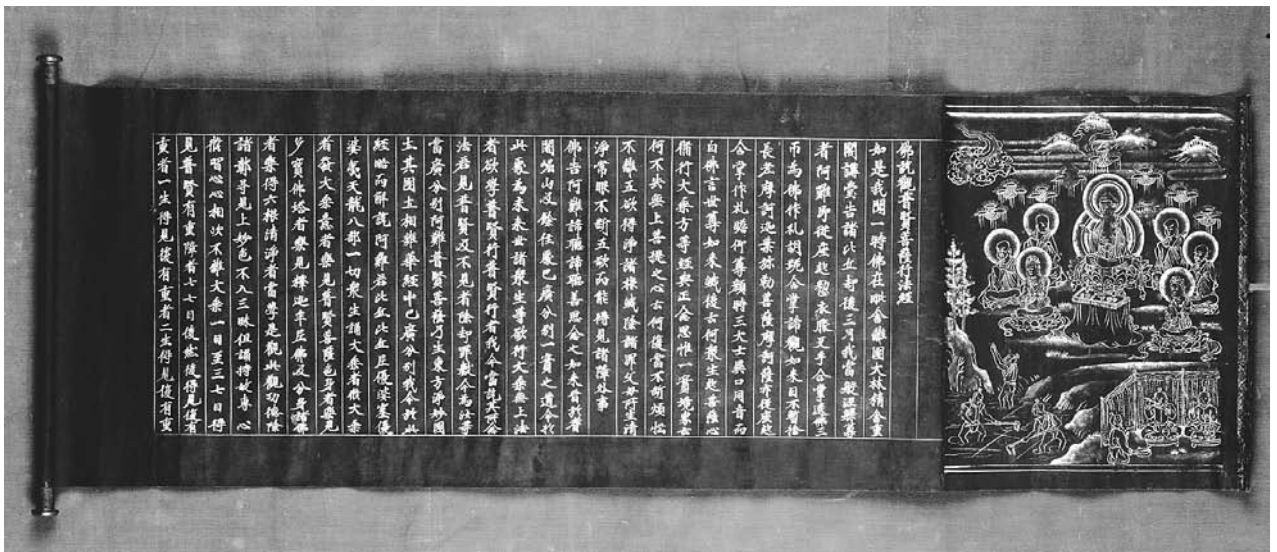 佛說觀普賢菩薩行法經
如是我聞一時佛在毗舍離國大林精舍重
閣講堂告諸比丘却後三月我當般涅槃尊
者阿難即從座起整衣服叉手合掌遶佛三
帀為佛作礼胡跪合掌諦觀如來目不暫捨
長老摩訶迦葉弥勒菩薩摩訶薩亦從座起
合掌作礼瞻仰尊顏時三大士異口同音而
白佛言世尊如來滅後云何衆生起菩薩心
修行大乘方等經典正念思惟一實境界云
何不失無上菩提之心云何復當不斷煩惱
不離五欲得淨諸根滅除諸罪父母所生清
淨常眼不斷五欲而能得見諸障外事
佛告阿難諦聽諦聽善思念之如來昔於耆
闍崛山及餘住處已廣分別一實之道今於
此處為未來世諸衆生等欲行大乘無上法
者欲學普賢行普賢行者我今當說其念
法若見普賢及不見者除却罪數今為汝等
當廣分別阿難普賢菩薩乃生東方淨妙國
土其國土相雜華經中已廣分別我今於此
經略而解說阿難若比丘比丘尼優婆塞優
婆夷天龍八部一切衆生誦大乘者修大乘
者發大乘意者樂見普賢菩薩色身者樂見
多寶佛塔者樂見釋迦牟尼佛及分身諸佛
者樂得六根清淨者當學是觀此觀功德除
諸鄣㝵見上妙色不入三昧但誦持故專心
修習心心相次不離大乘一日至三七日得
見普賢有重障者七七日後然後得見復有
重者一生得見復有重者二生得見復有重